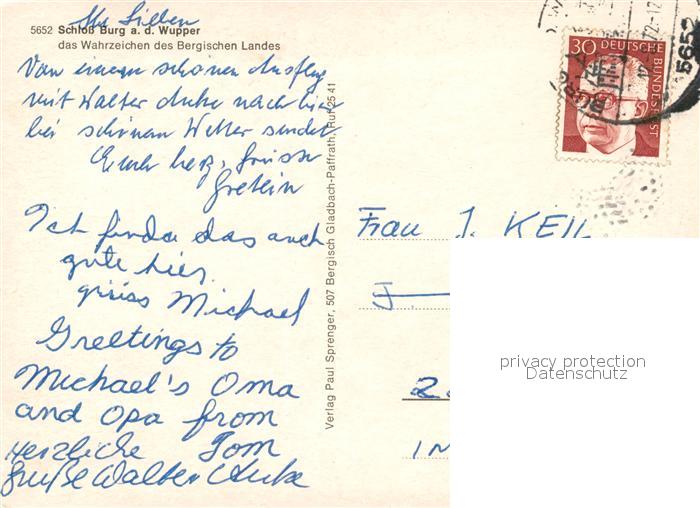 Ihr Lieben
5652 Schloß Burg a. d. Wupper
das Wahrzeichen des Bergischen Landes
Von einem schönen Ausflug
mit Walter Anke nach hier
bei schönem Wetter sendet
Euch herz. Grüsse
Gretein
Ich finde das auch
gute hier.
grüss Michael
Greetings to
Michael's Oma
and Opa from
Tom
Herzliche
Grüße Walter Anke
Verlag Paul Sprenger, 507 Bergisch Gladbach-Paffrath, Ruf 25 41
30 DEUTSCHE BUNDESPOST
5652
Frau J. KEIL
privacy protection
Datenschutz